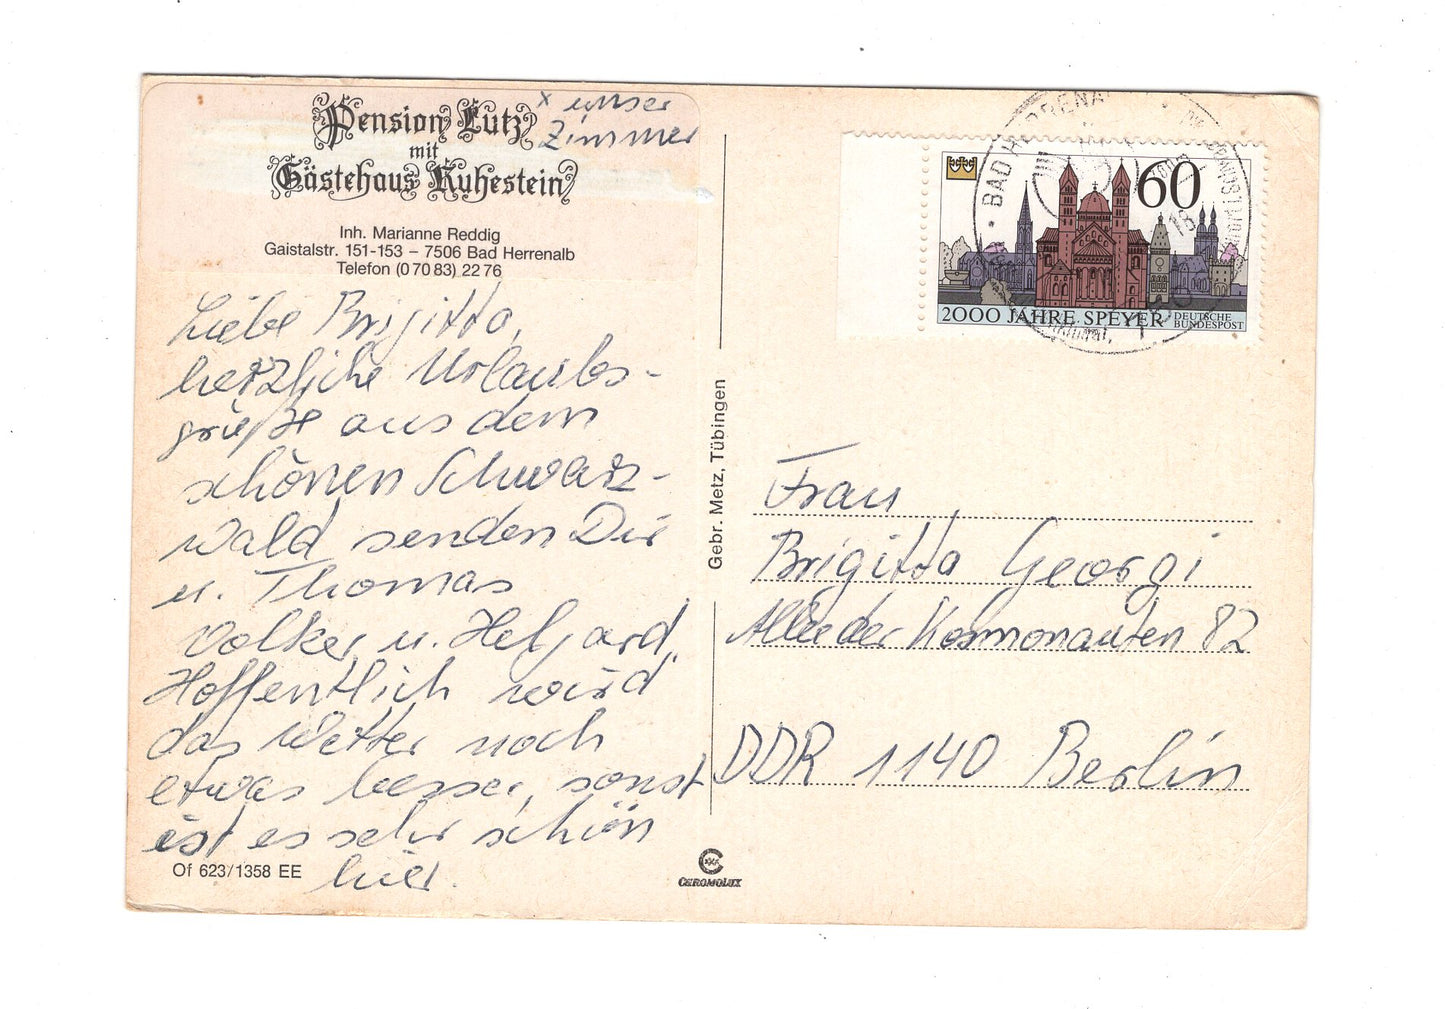 Pension Lutz
mit
Gästehaus Ruhestein
x unser
Zimmer
Inh. Marianne Reddig
Gaistalstr. 151-153 – 7506 Bad Herrenalb
Telefon (0 70 83) 22 76
Liebe Brigitta,
herzliche Urlaubs-
grüße aus dem
schönen Schwarz-
wald senden Dir
u. Thomas
Volker u. Helgard.
Hoffentlich wird
das Wetter noch
etwas besser, sonst
ist es sehr schön
hier.
Of 623/1358 EE
Gebr. Metz, Tübingen
CHROMOLUX
BAD HERRENA
18
60
2000 JAHRE SPEYER
DEUTSCHE
BUNDESPOST
1990
Frau
Brigitta Georgi
Allee der Kosmonauten 82
DDR 1140 Berlin